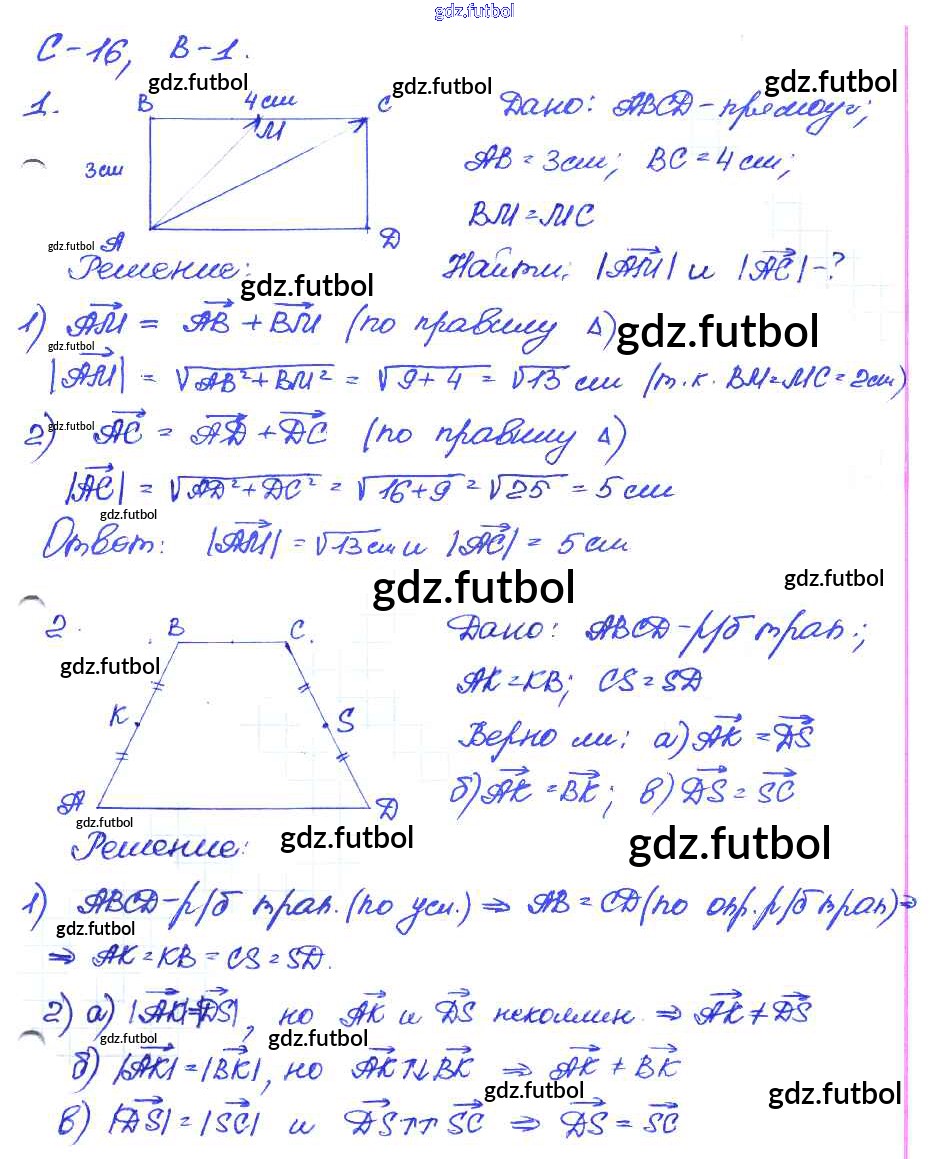 gdz.futbol
С-16, В-1.
gdz.futbol gdz.futbol gdz.futbol
1. B 4см C Дано: ABCD - прямоуг;
M
3см AB = 3см; BC = 4см;
BM = MC
gdz.futbol A D
Решение: Найти: |AM| и |AC| - ?
gdz.futbol
1) AM = AB + BM (по правилу Δ) gdz.futbol
gdz.futbol
|AM| = √AB²+BM² = √9+4 = √13 см (т.к. BM=MC=2см)
2) gdz.futbol AC = AD + DC (по правилу Δ)
|AC| = √AD²+DC² = √16+9 = √25 = 5 см
gdz.futbol
Ответ: |AM| = √13 см и |AC| = 5 см
gdz.futbol gdz.futbol
2. B C. Дано: ABCD - р/б трап.;
gdz.futbol
AK = KB; CS = SD
K S Верно ли: а) AK = DS
A D б) AK = BK; в) DS = SC
gdz.futbol
Решение: gdz.futbol gdz.futbol
1) ABCD - р/б трап. (по усл.) ⇒ AB = CD (по опр. р/б трап) ⇒
gdz.futbol
⇒ AK = KB = CS = SD.
2) а) |AK|=|DS|, но AK и DS неколлин. ⇒ AK ≠ DS
gdz.futbol gdz.futbol
б) |AK| = |BK|, но AK ↑↓ BK ⇒ AK ≠ BK
gdz.futbol gdz.futbol
в) |DS| = |SC| и DS ↑↑ SC ⇒ DS = SC